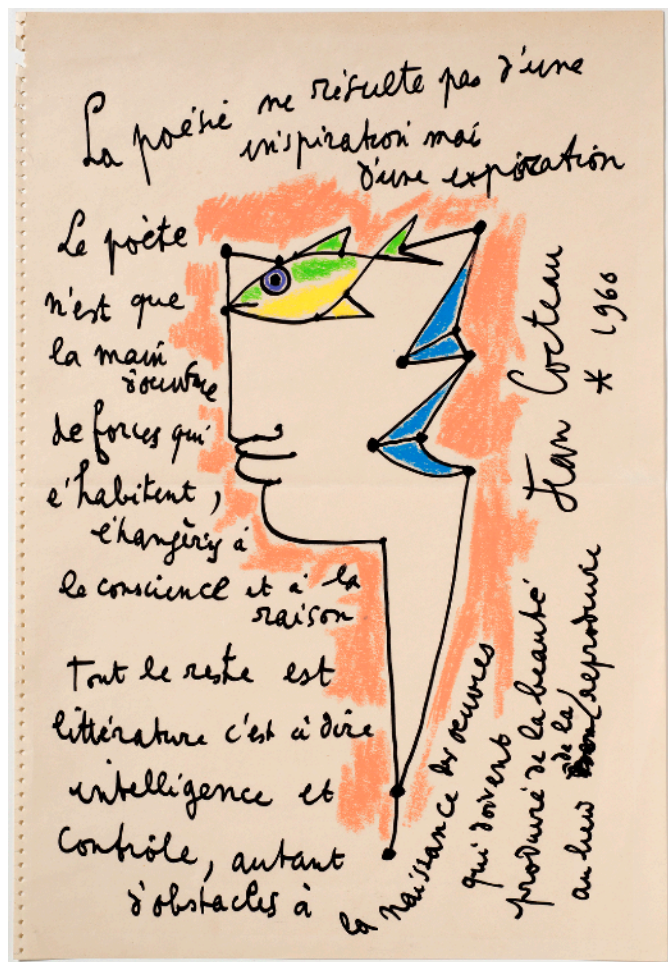 La poésie ne résulte pas d'une
inspiration mai
d'une expiration
Le poète
n'est que
la main
de forces qui
l'habitent,
à
la conscience et à la
raison
Tout le reste est
littérature c'est à dire
intelligence et
contrôle, autant
d'obstacles à
la naissance des oeuvres
qui doivent
produire de la beauté
au lieu de la reproduire
Jean Cocteau
* 1960